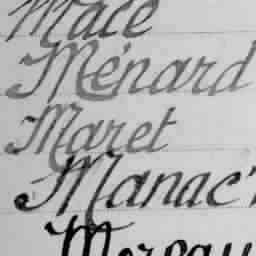 Macé
Ménard
Maret
Manac'
Moreau